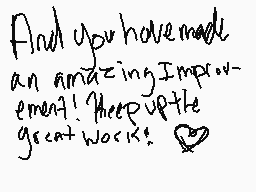 And you have made
an amazing Improv-
ement! Keep up the
great work!